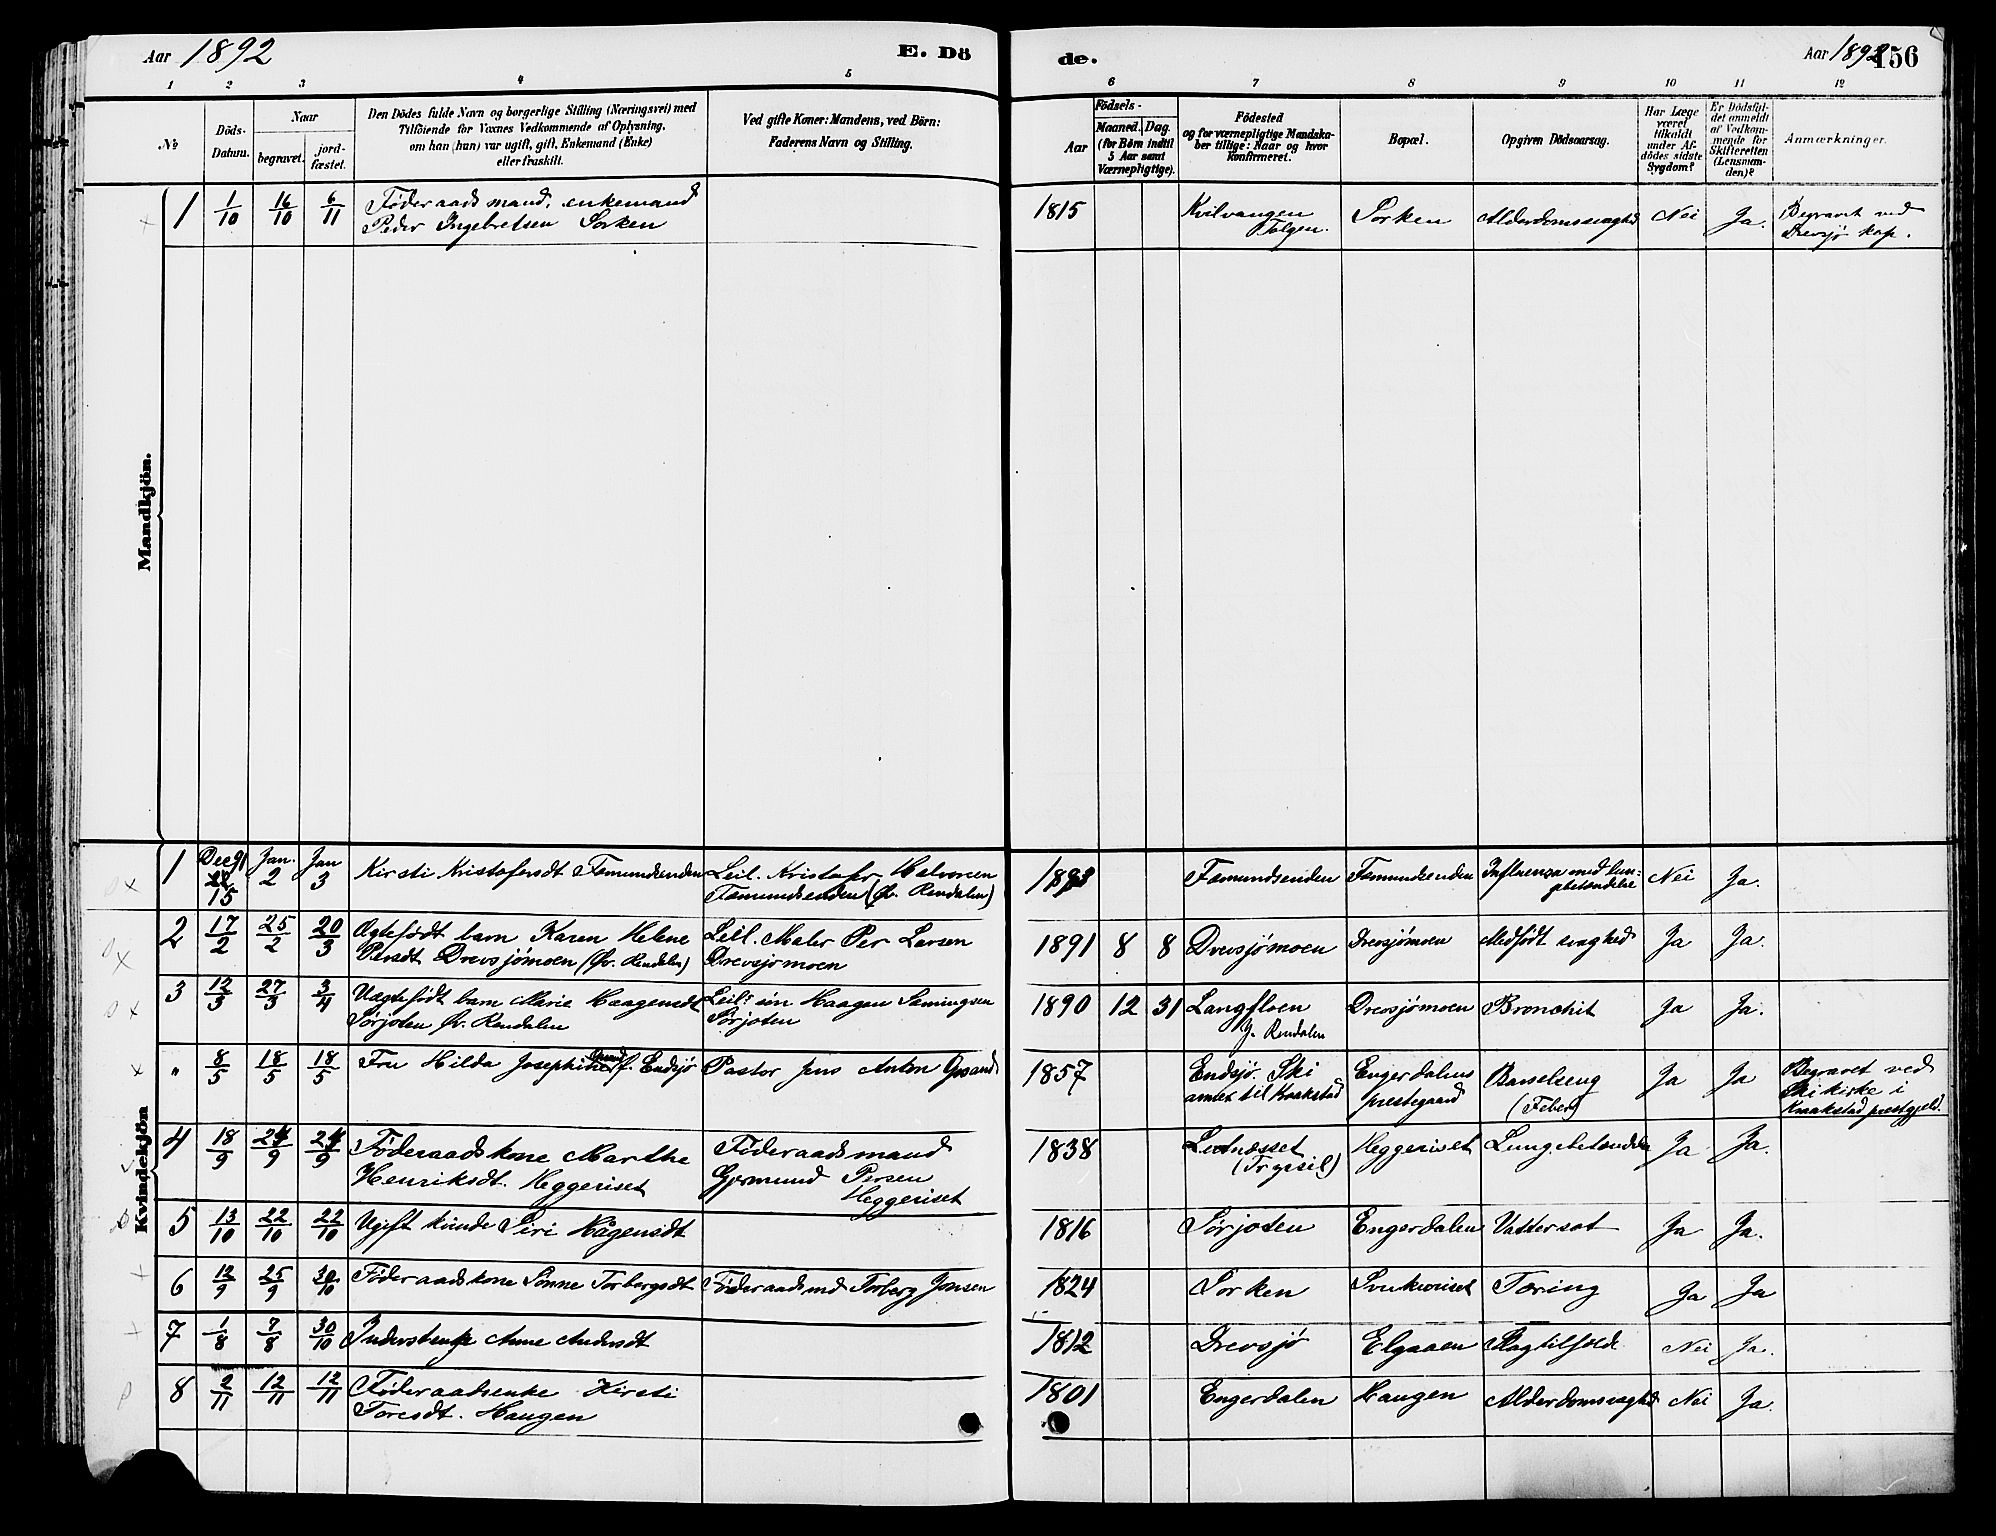 Aar 1892
E. Dö
de.
Aar 1892
156
1 2 3 4 5 6 7 8 9 10 11 12
No
Döds-
Datum.
Naar
begravet.
jord-
fæstet.
Den Dödes fulde Navn og borgerlige Stilling (Næringsvei) med
Tilföiende for Voxnes Vedkommende af Oplysning,
om han (hun) var ugift, gift, Enkemand (Enke)
eller fraskilt.
Ved gifte Koner: Mandens, ved Börn:
Faderens Navn og Stilling.
Födsels-
Aar
Maaned. Dag.
(for Börn indtil
5 Aar samt
Værnepligtige).
Födested
og for værnepligtige Mandska-
ber tillige: Naar og hvor
konfirmeret.
Bopæl.
Opgiven Dödsaarsag.
Har Læge
været
tilkaldt
under Af-
dödes sidste
Sygdom?
Er Dödsfal-
det anmeldt
af Vedkom-
mende for
Skifteretten
(Lensman-
den)?
Anmærkninger.
Mandkjön.
1 1/10 16/10 6/11 Føderaadsmand, enkemand 1815 Kvilvangen Sorken Alderdomssvaghed Nei Ja. Begravet ved
Peder Ingebretsen Sorken Tolgen. Drevsjø kap.
Kvindekjön
1 Dec 91 15 Jan. 2 Jan 3 Kirsti Kristofersdt Femundsenden Leil. Kristofer Halvorsen Femundsenden Femundsenden Influenza med lun- Nei Ja.
Femundsenden (Øv. Rendalen) gebetændelse
2 17/2 25/2 20/3 Ægtefødt barn Karen Helene Leil. Maler Per Larsen 1891 8 8 Drevsjømoen Drevsjømoen Medfødt svaghed Ja Ja.
Persdt Drevsjømoen (Øv. Rendalen) Drevsjømoen
3 12/3 27/3 3/4 Uægtefødt barn Marie Haagensdt Leil. søn Haagen Samingsen 1890 12 31 Langfloen Drevsjømoen Bronchit Ja Ja.
Sørjoten Øv. Rendalen Sørjoten Y. Rendalen
" 8/5 18/5 18/5 Fru Hilda Josephine f. Endsjø Pastor Jens Anton 1857 Endsjø. Ski Engerdalens Barselseng Ja Ja Begravet ved
anex til Kraakstad prestegaard (Feber) Ski kirke i
Kraakstad prestgjeld.
4 18/9 24/9 24/9 Føderaadskone Marthe Føderaadsmand 1838 Heggeriset Lungebetændelse Ja Ja.
Henriksdt. Heggeriset Gjermund Persen (Trysil)
Heggeriset
5 13/10 22/10 22/10 Ugift kvinde Siri Hågensdt 1816 Sørjoten Engerdalen Vattersot Ja Ja.
6 12/9 25/9 30/10 Føderaadskone Sønne Torbergsdt Føderaadsmd Torberg Jonsen 1824 Sorken Svukuriset Tæring Ja Ja
7 1/8 7/8 30/10 Inderstenke Anne Andersdt 1812 Drevsjø Elgaaen Slagtilfælde Nei Ja.
8 2/11 12/11 12/11 Føderaadsenke Kirsti 1801 Engerdalen Haugen Alderdomssvaghed Nei Ja.
Toresdt. Haugen